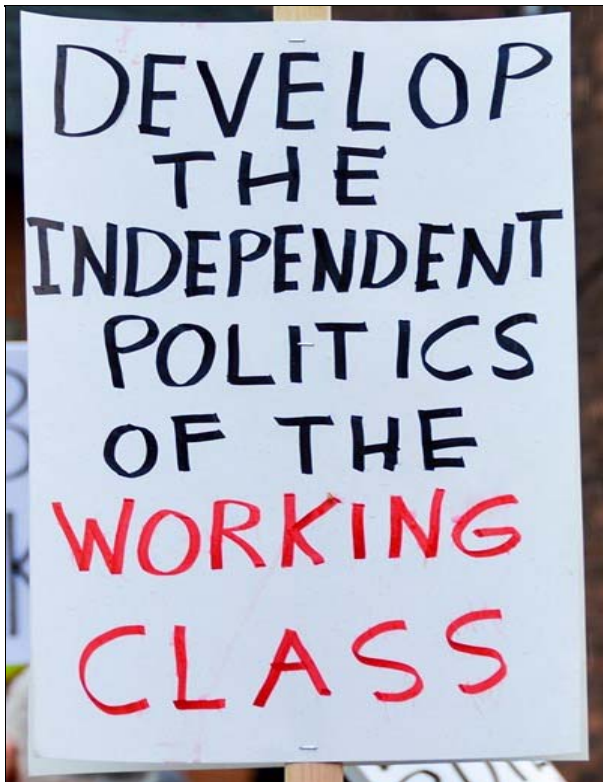 DEVELOP
THE
INDEPENDENT
POLITICS
OF THE
WORKING
CLASS